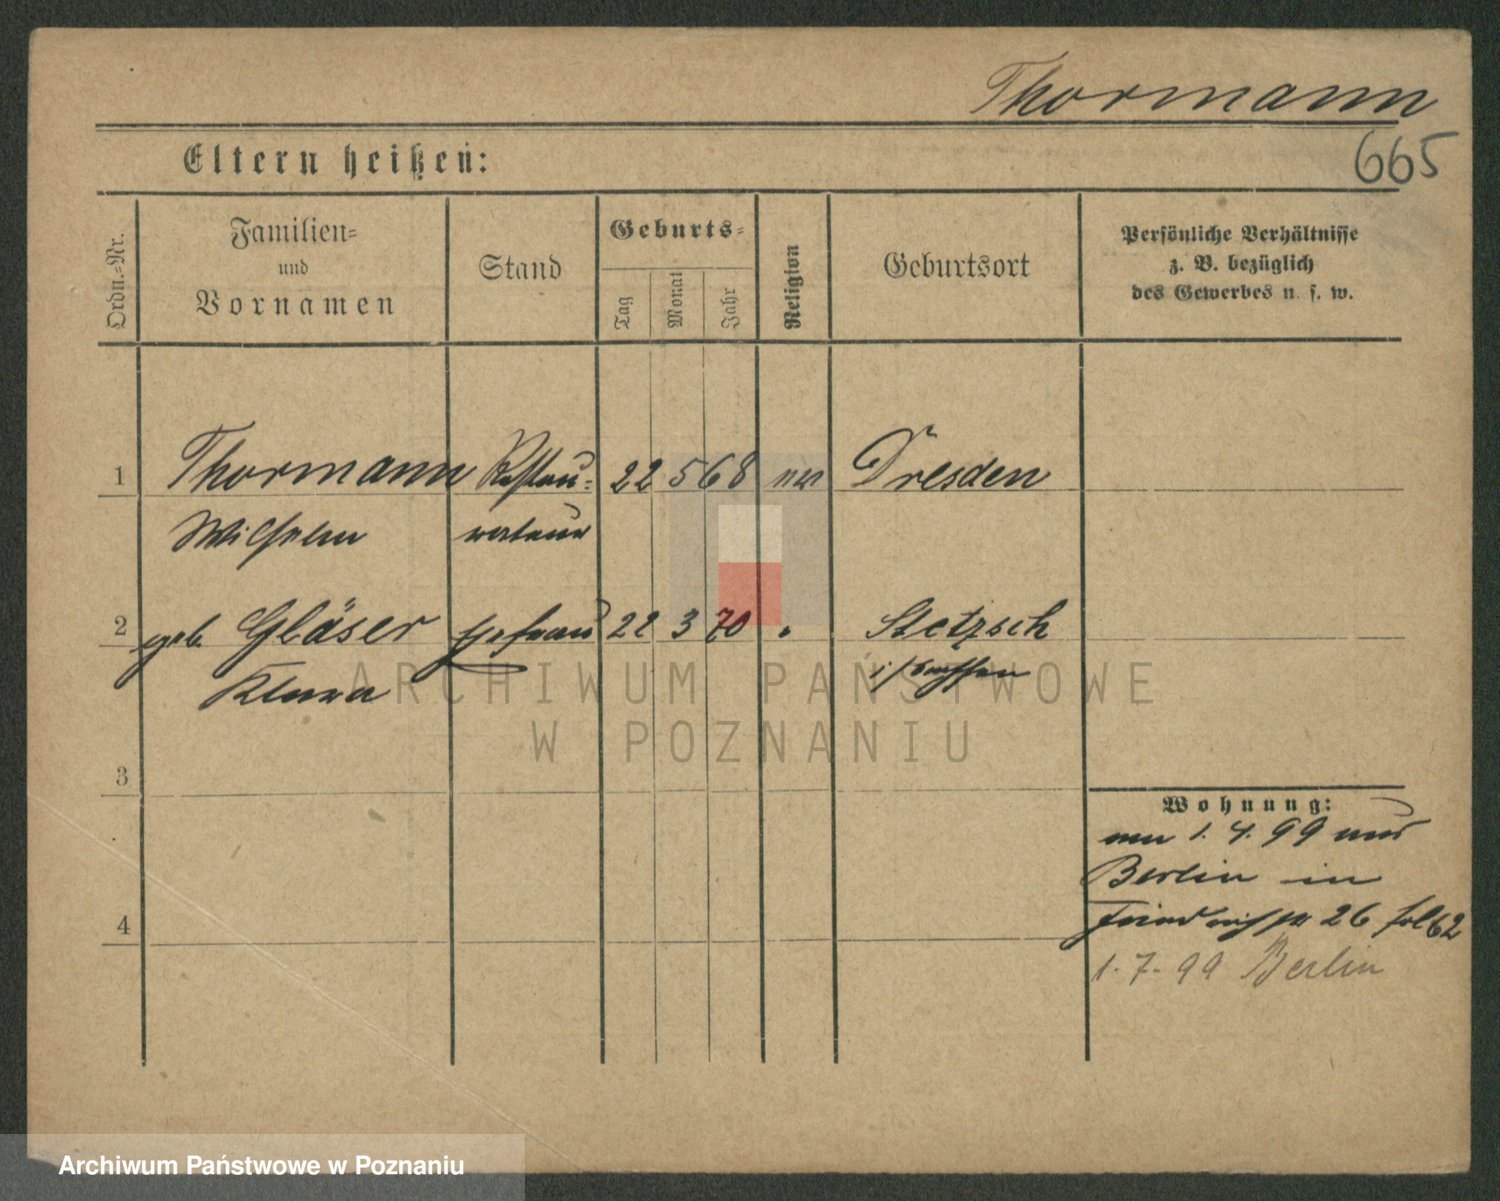 Thormann
665
Eltern heißen:
Ordn.-Nr.
Familien-
und
Vornamen
Stand
Geburts-
Tag
Monat
Jahr
Religion
Geburtsort
Persönliche Verhältnisse
z. B. bezüglich
des Gewerbes u. s. w.
1
Thormann
Restau-
22
5
68
Dresden
Wilhelm
rateur
2
geb. Gläser
Ehefrau
22
3
70
"
Stetzsch
Klara
i/ Sachsen
3
4
Wohnung:
1. 4. 99 aus
Berlin in
26
62
1. 7. 99 Berlin
ARCHIWUM PAŃSTWOWE
W POZNANIU
Archiwum Państwowe w Poznaniu